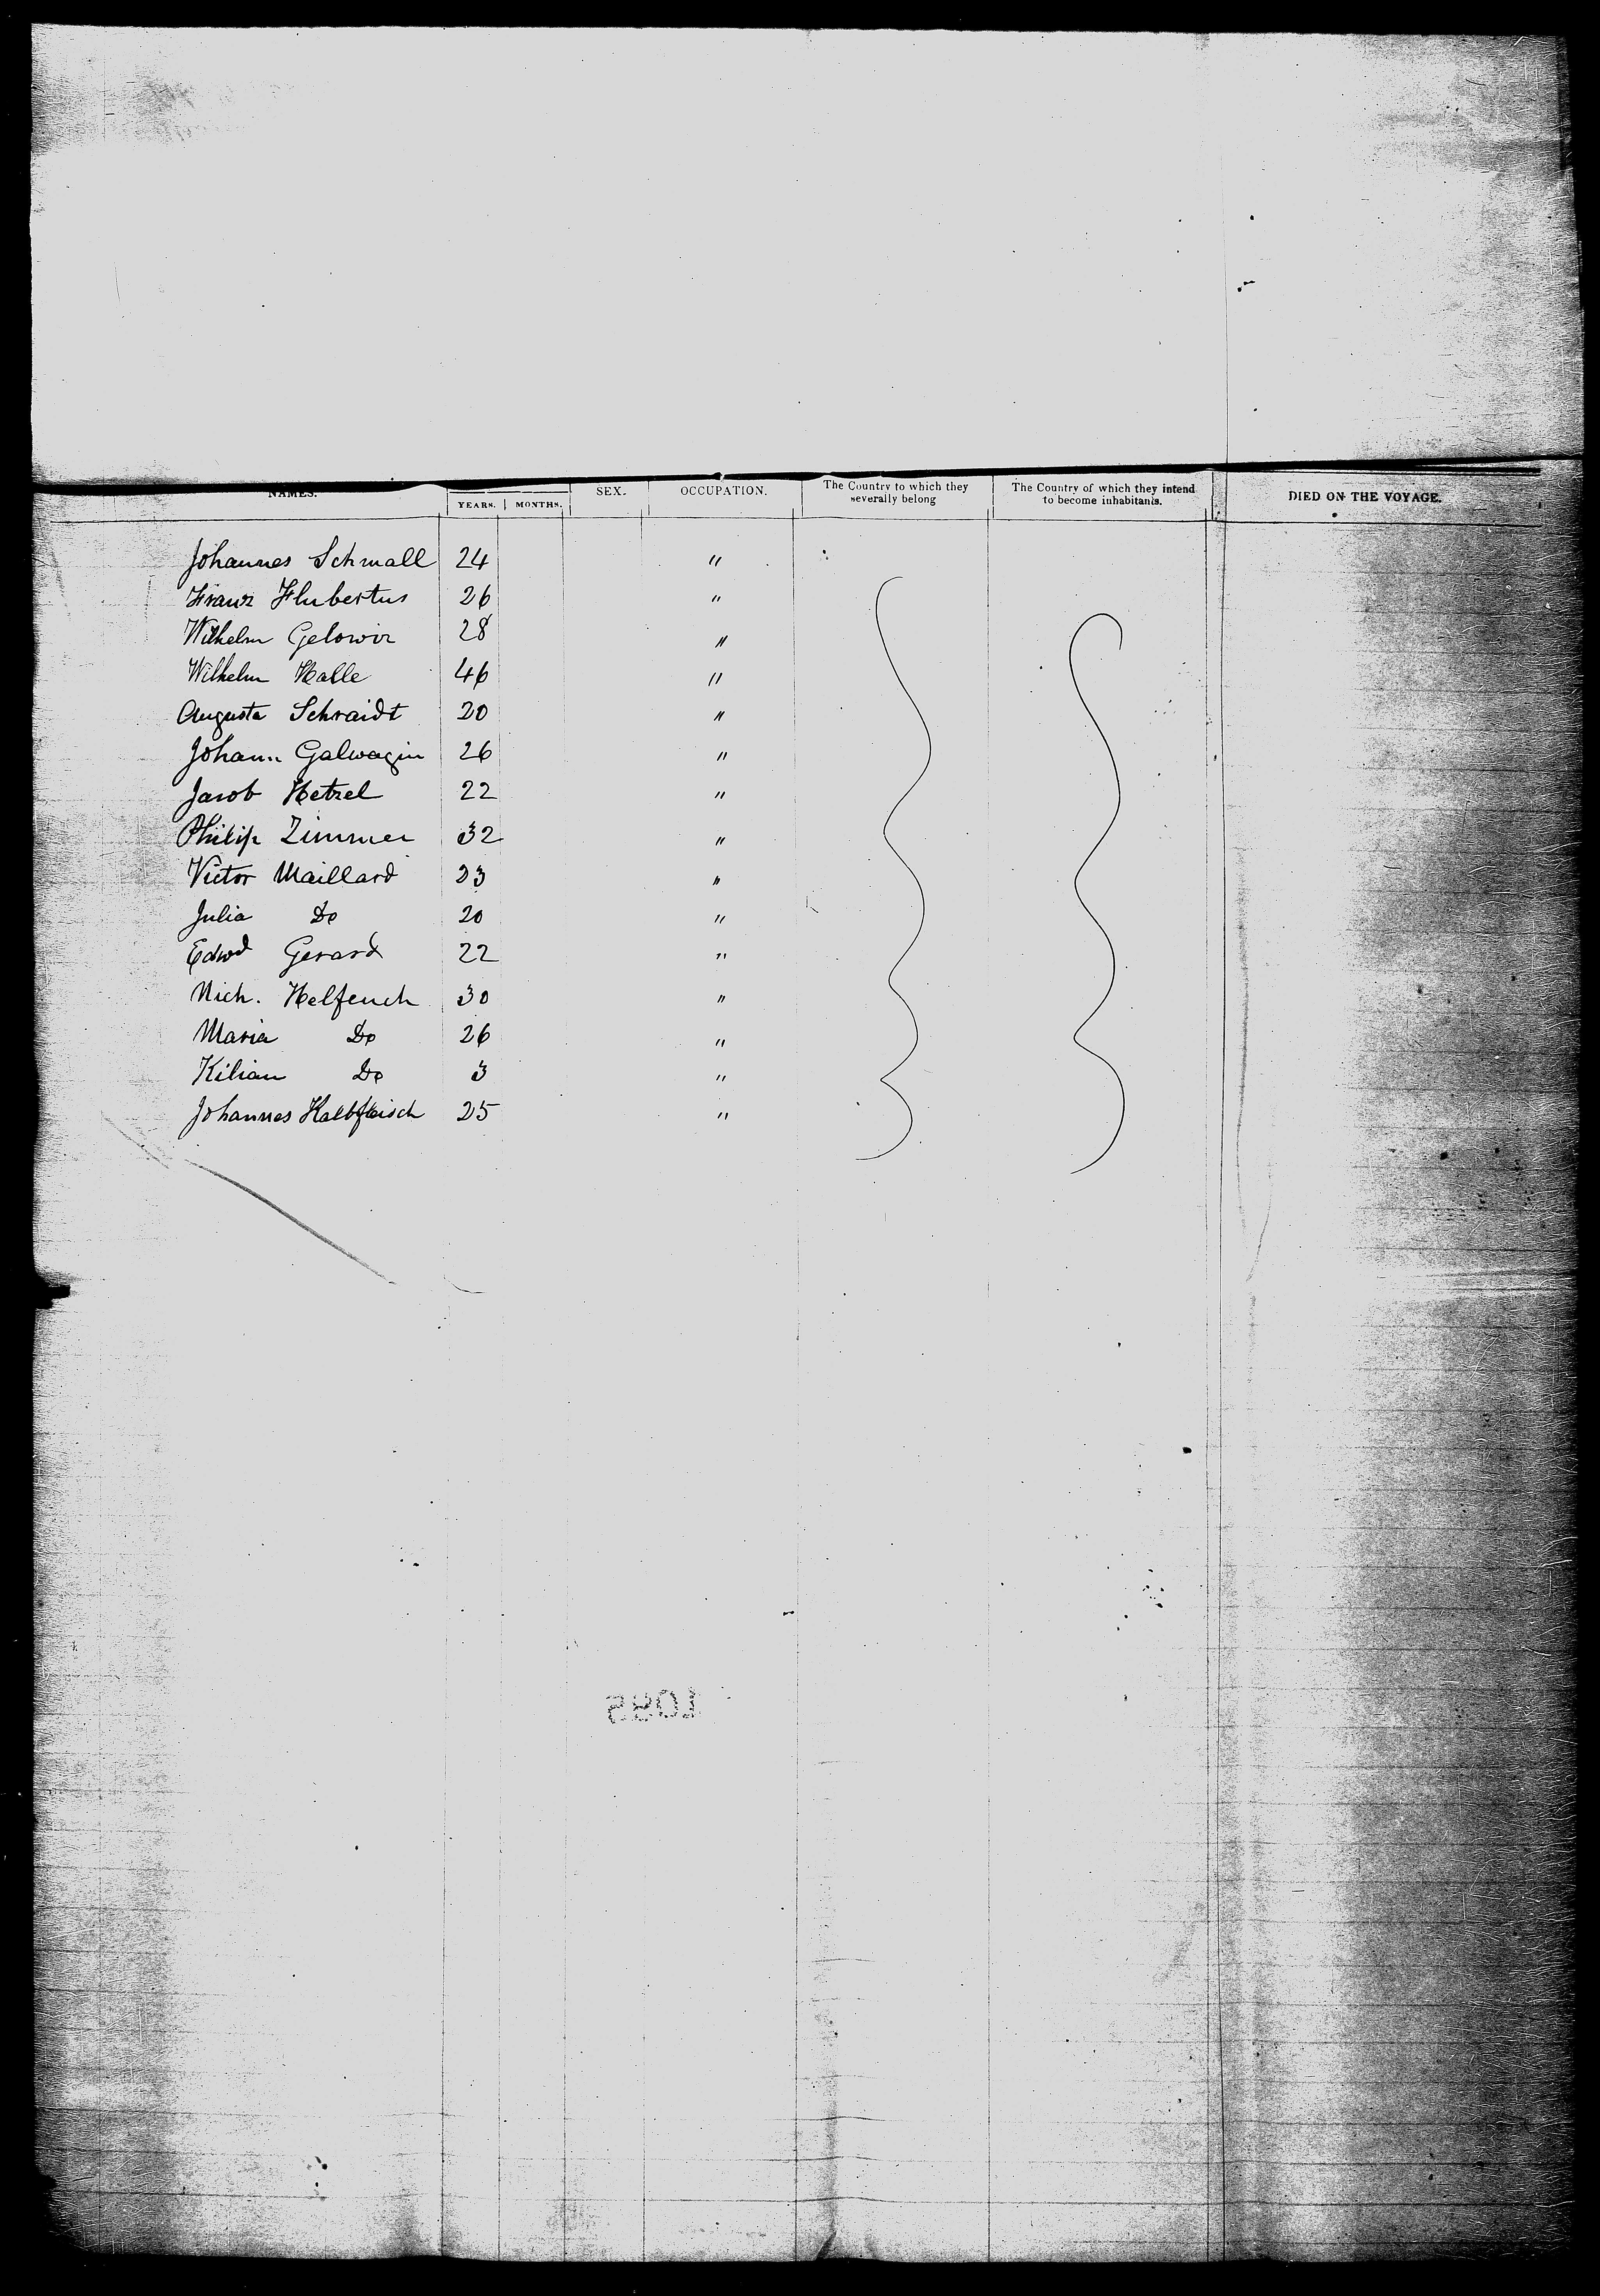 NAMES. YEARS. MONTHS. SEX. OCCUPATION. The Country to which they severally belong The Country of which they intend to become inhabitants. DIED ON THE VOYAGE.
Johannes Schmall 24 "
Franz Hubertus 26 "
Wilhelm Gelowir 28 "
Wilhelm Halle 46 "
Augusta Schmidt 20 "
Johann Galwagin 26 "
Jacob Hetzel 22 "
Philip Zimmer 32 "
Victor Maillard 23 "
Julia Do 20 "
Edwd Gerard 22 "
Nich. Helfench 30 "
Maria Do 26 "
Kilian Do 3 "
Johannes Kalbfleisch 25 "